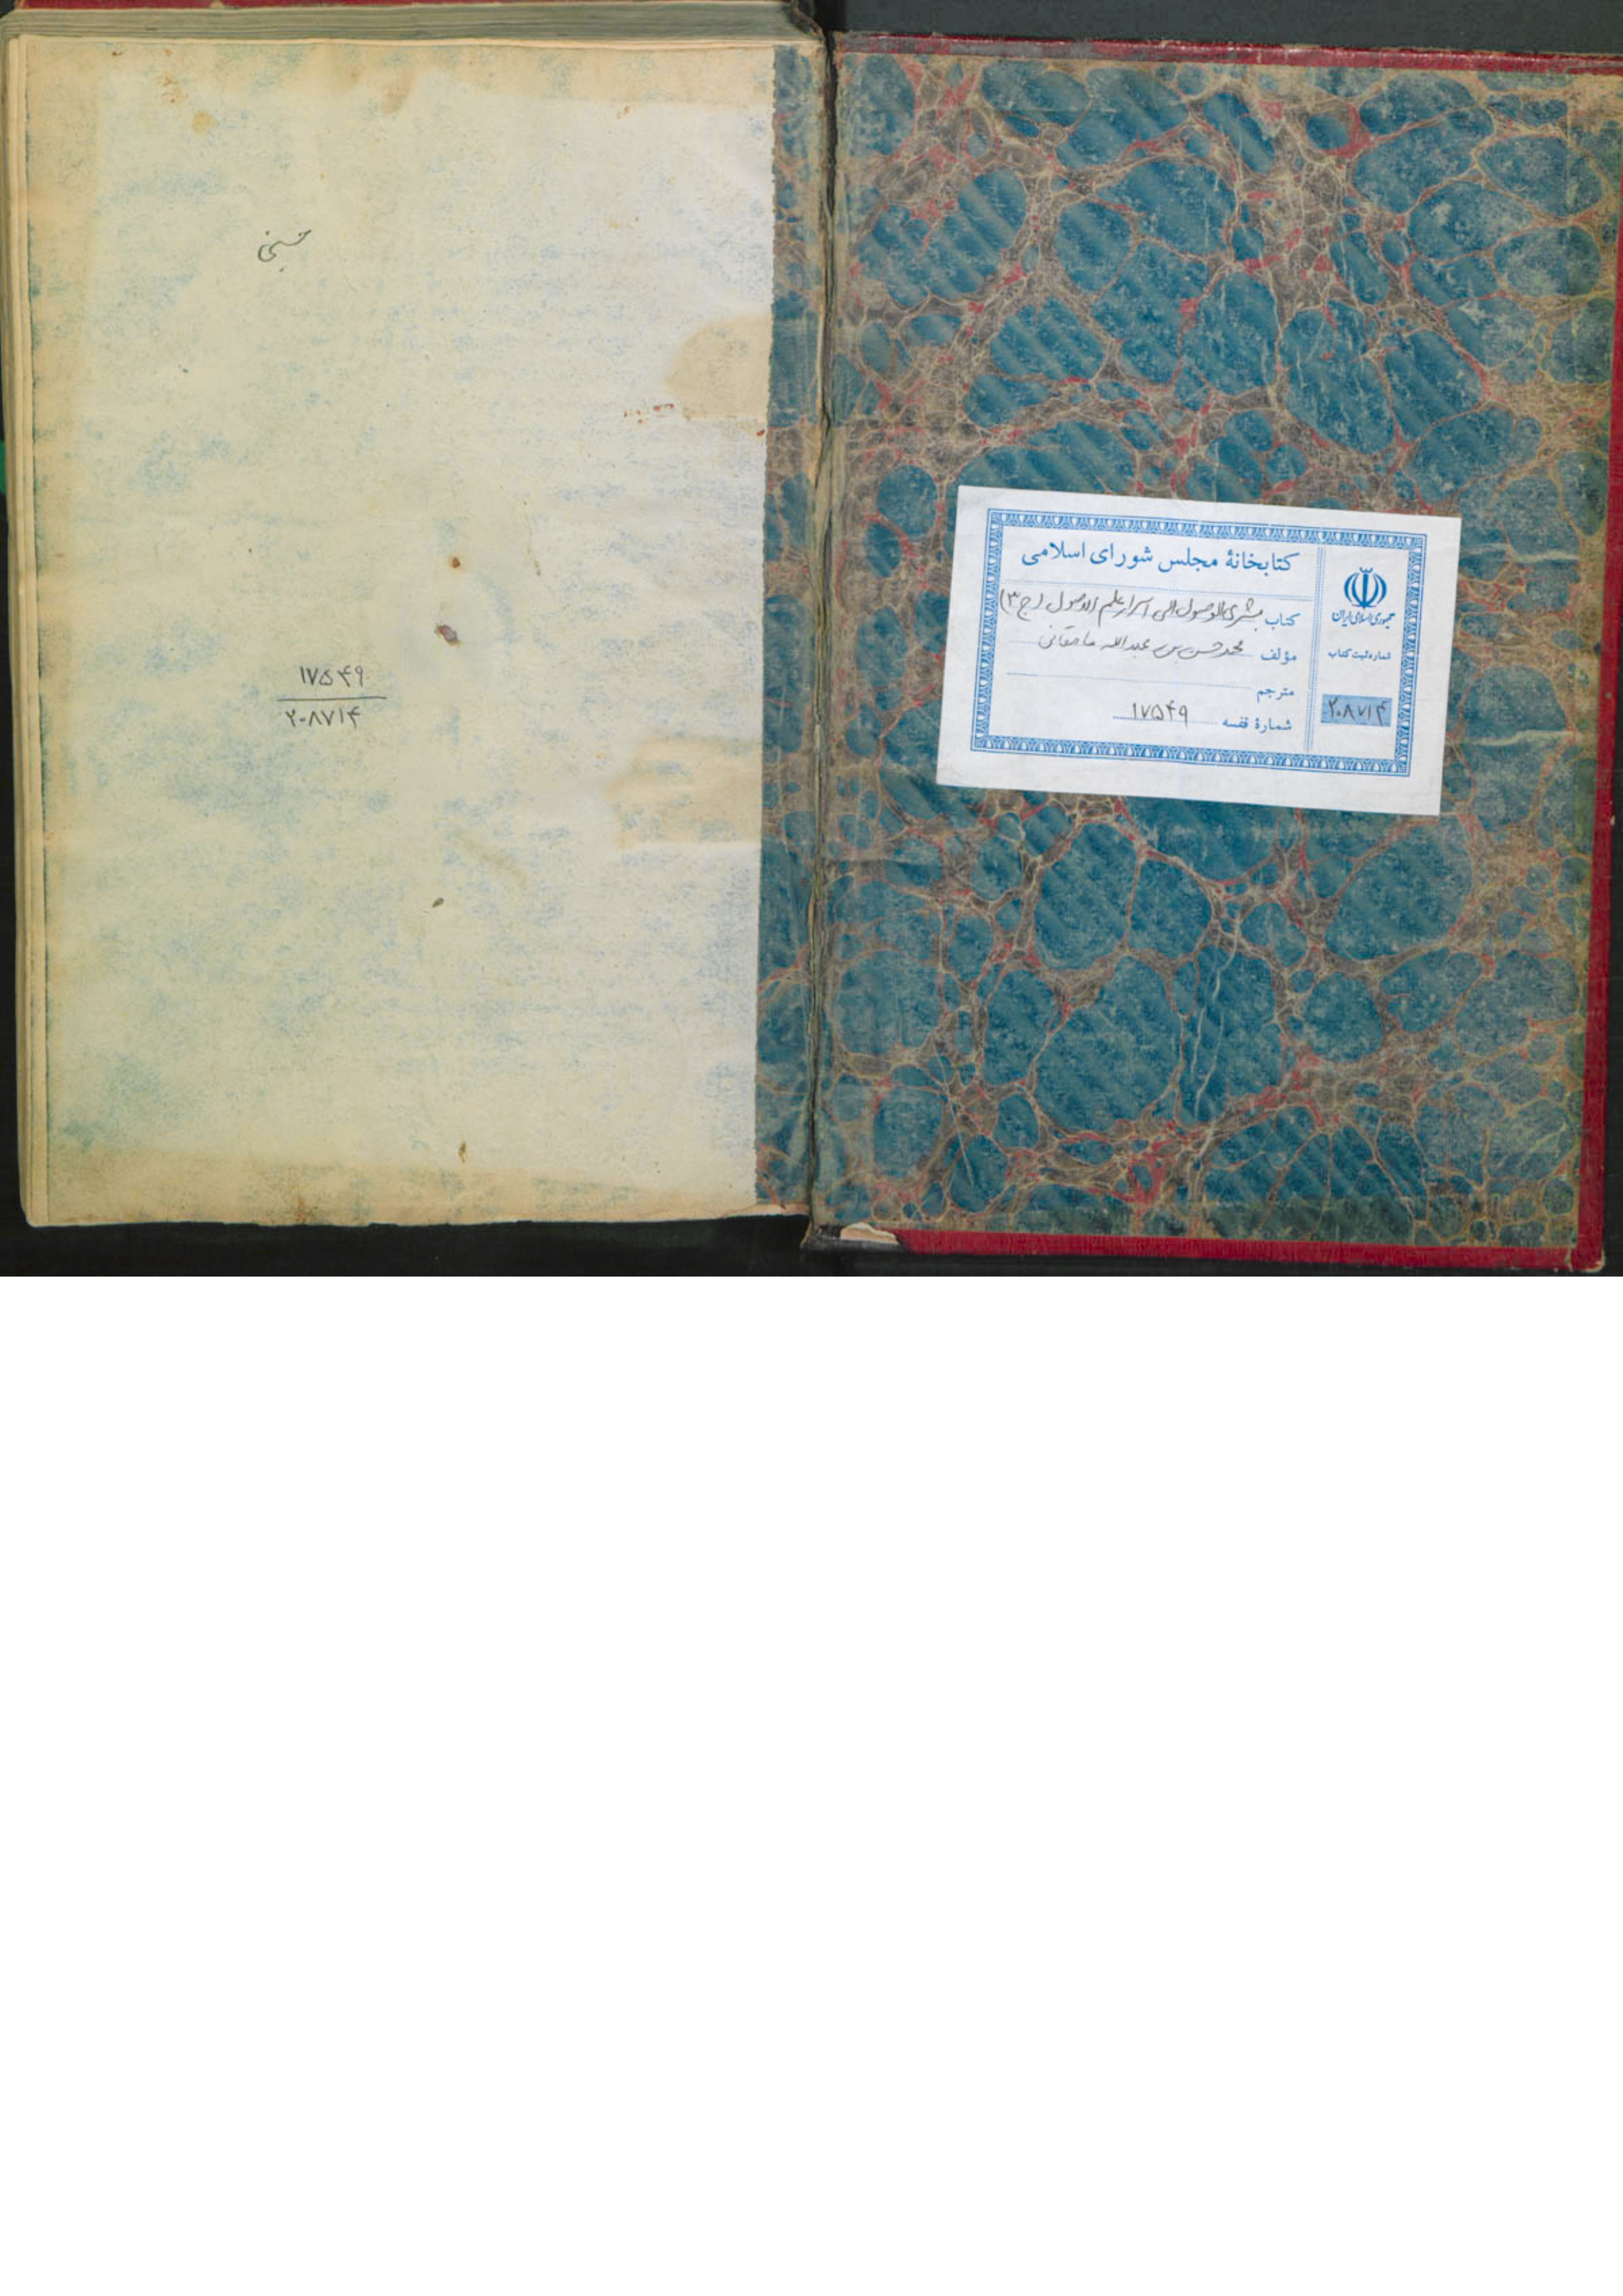 کتابخانهٔ مجلس شورای اسلامی
کتاب بشری الوصول الی اسرار علم الاصول (ج۳)
مؤلف محمدحسن بن عبدالله مامقانی
مترجم
شمارهٔ قفسه ۱۷۵۴۹
جمهوری اسلامی ایران
شماره ثبت کتاب
۲۰۸۷۱۴
۱۷۵۴۹
۲۰۸۷۱۴